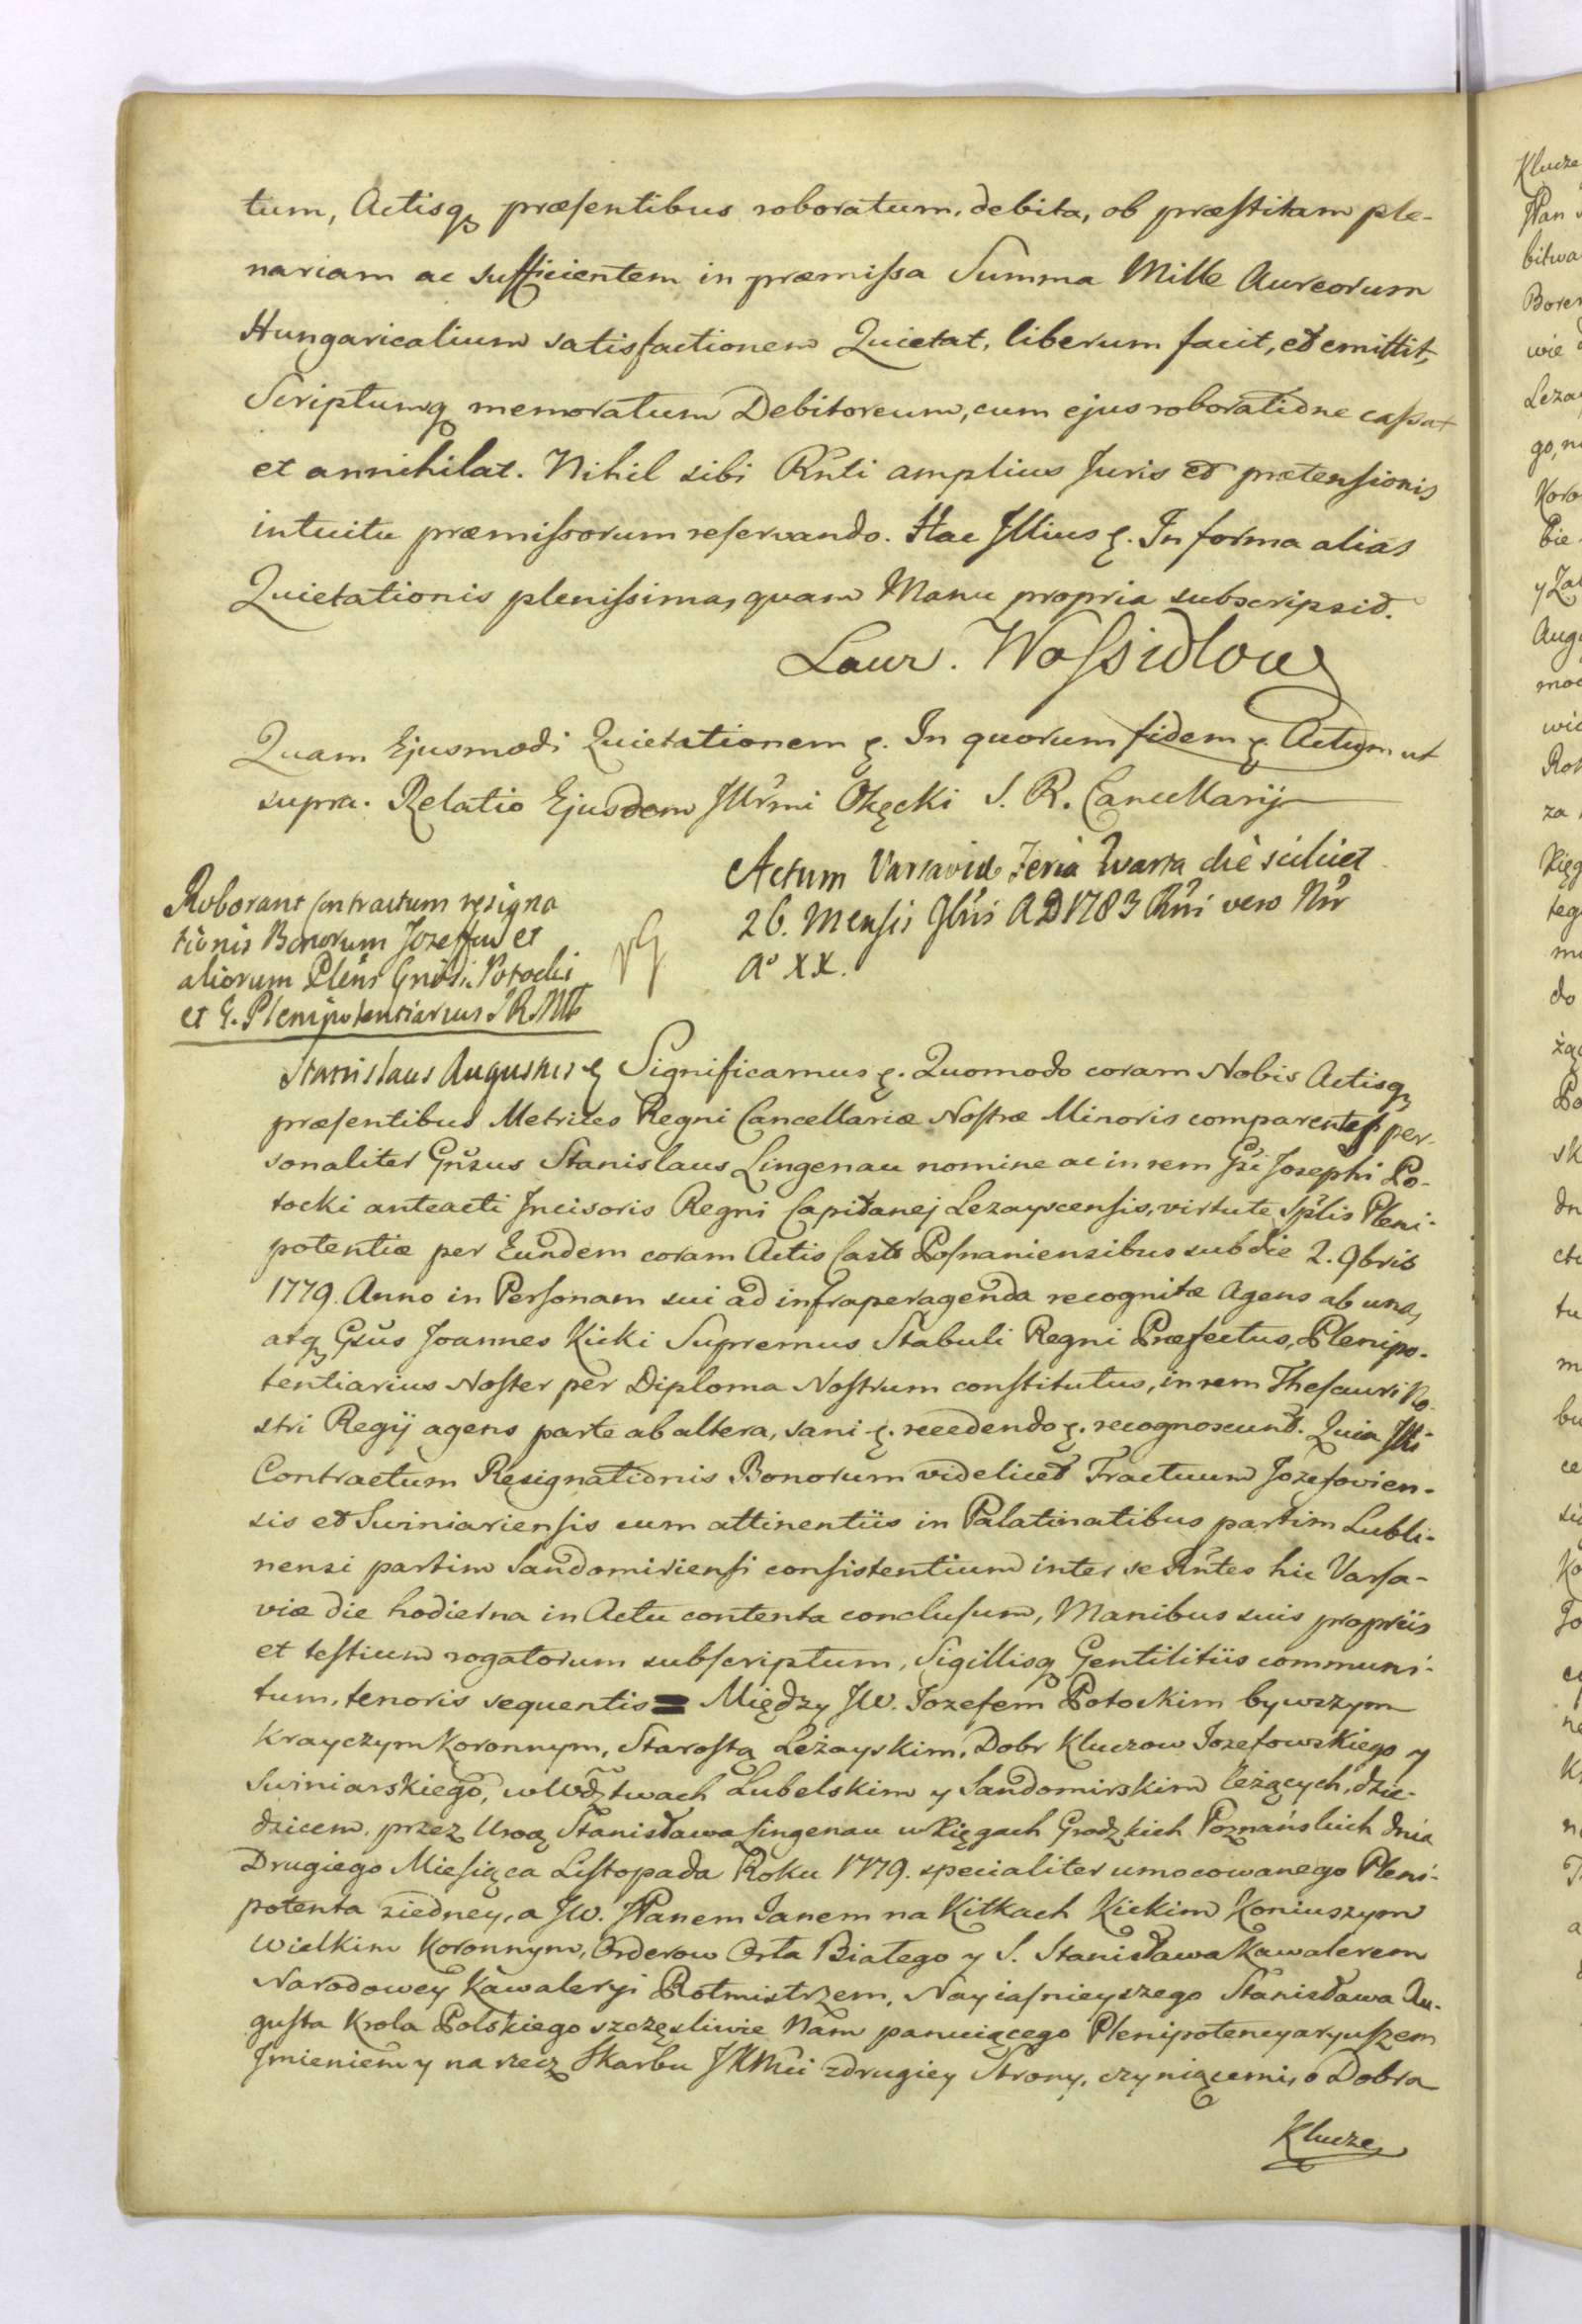 tum, Actisq præsentibus roboratum, debita, ob præstitam ple-
nariam ac sufficientem in præmissa Summa Mille Aureorum
Hungaricalium satisfactionem Quietat, liberum facit, et emittit,
Scriptumq memoratum Debitoreum, cum ejus roboratione cassat
et annihilat. Nihil sibi Rñti amplius Juris et prætensionis
intuitu præmissorum reservando. Hac Illius ę. In forma alias
Quietationis plenissima, quam Manu propria subscripsit.
Laur. Wossidlow
Quam Ejusmodi Quietationem ę. In quorum fidem ę. Actum ut
supra. Relatio Ejusdem Illr̃mi Okęcki S. R. Cancellarij
Actum Varsaviæ Feria Quarta die scilicet
26. Mensis 9br̃is AD 1783 Rñi vero Nr̃i
Aº XX.
Roborant Contractum resigna
tionis Bonorum Jozeffow et
aliorum Pleñs Gñosi Potocki
et G. Plenipotentiarius S R Mtt
Stanislaus Augustus ę Significamus ę. Quomodo coram Nobis Actisq
præsentibus Metrices Regni Cancellariæ Nostræ Minoris comparentes per-
sonaliter Gñsus Stanislaus Lingenau nomine ac in rem Gsi Josephi Po-
tocki anteacti Incisoris Regni Capitanej Lezayscensis, virtute Splis Pleni-
potentiæ per Eundem coram Actis Casts Posnaniensibus sub die 2. 9bris
1779. Anno in Personam sui ad infraperagenda recognitæ Agens ab una,
atq Gsũs Joannes Kicki Supremus Stabuli Regni Præfectus, Plenipo-
tentiarius Noster per Diploma Nostrum constitutus, in rem Thesauri No-
stri Regij agens parte ab altera, sani ę. recedendo ę. recognoscunt. Quia Illi
Contractum Resignationis Bonorum videlicet Tractuum Jozefovien-
sis et Swiniariensis cum attinentiis in Palatinatibus partim Lubli-
nensi partim Sandomiriensi consistentium inter se Rñtes hic Varsa-
viæ die hodierna in Actu contenta conclusum, Manibus suis propriis
et testium rogatorum subscriptum, Sigillisq Gentilitiis communi-
tum, tenoris sequentis = Między JW. Jozefem Potockim bywszym
Krayczym Koronnym, Starostą Leżayskim, Dobr Kluczow Jozefowskiego y
Swiniarskiego, w Wdztwach Lubelskim y Sandomirskim leżących, dzie-
dzicem, przez Uroą Stanisława Lingenau w Xięgach Grodzkich Poznańskich dnia
Drugiego Miesiąca Listopada Roku 1779. specialiter umocowanego Pleni-
potenta ziedney, a JW. JPanem Janem na Kitkach Kickim Koniuszym
Wielkim Koronnym, Orderow Orła Białego y S. Stanisława Kawalerem
Narodowey Kawaleryi Rotmistrzem, Nayiasnieyszego Stanisława Au-
gusta Krola Polskiego szczęsliwie Nam panuiącego Plenipotencyaryuszem
Jmieniem y na rzecz Skarbu JKMći zdrugiey Strony, czyniącemi, o Dobra
Klucze